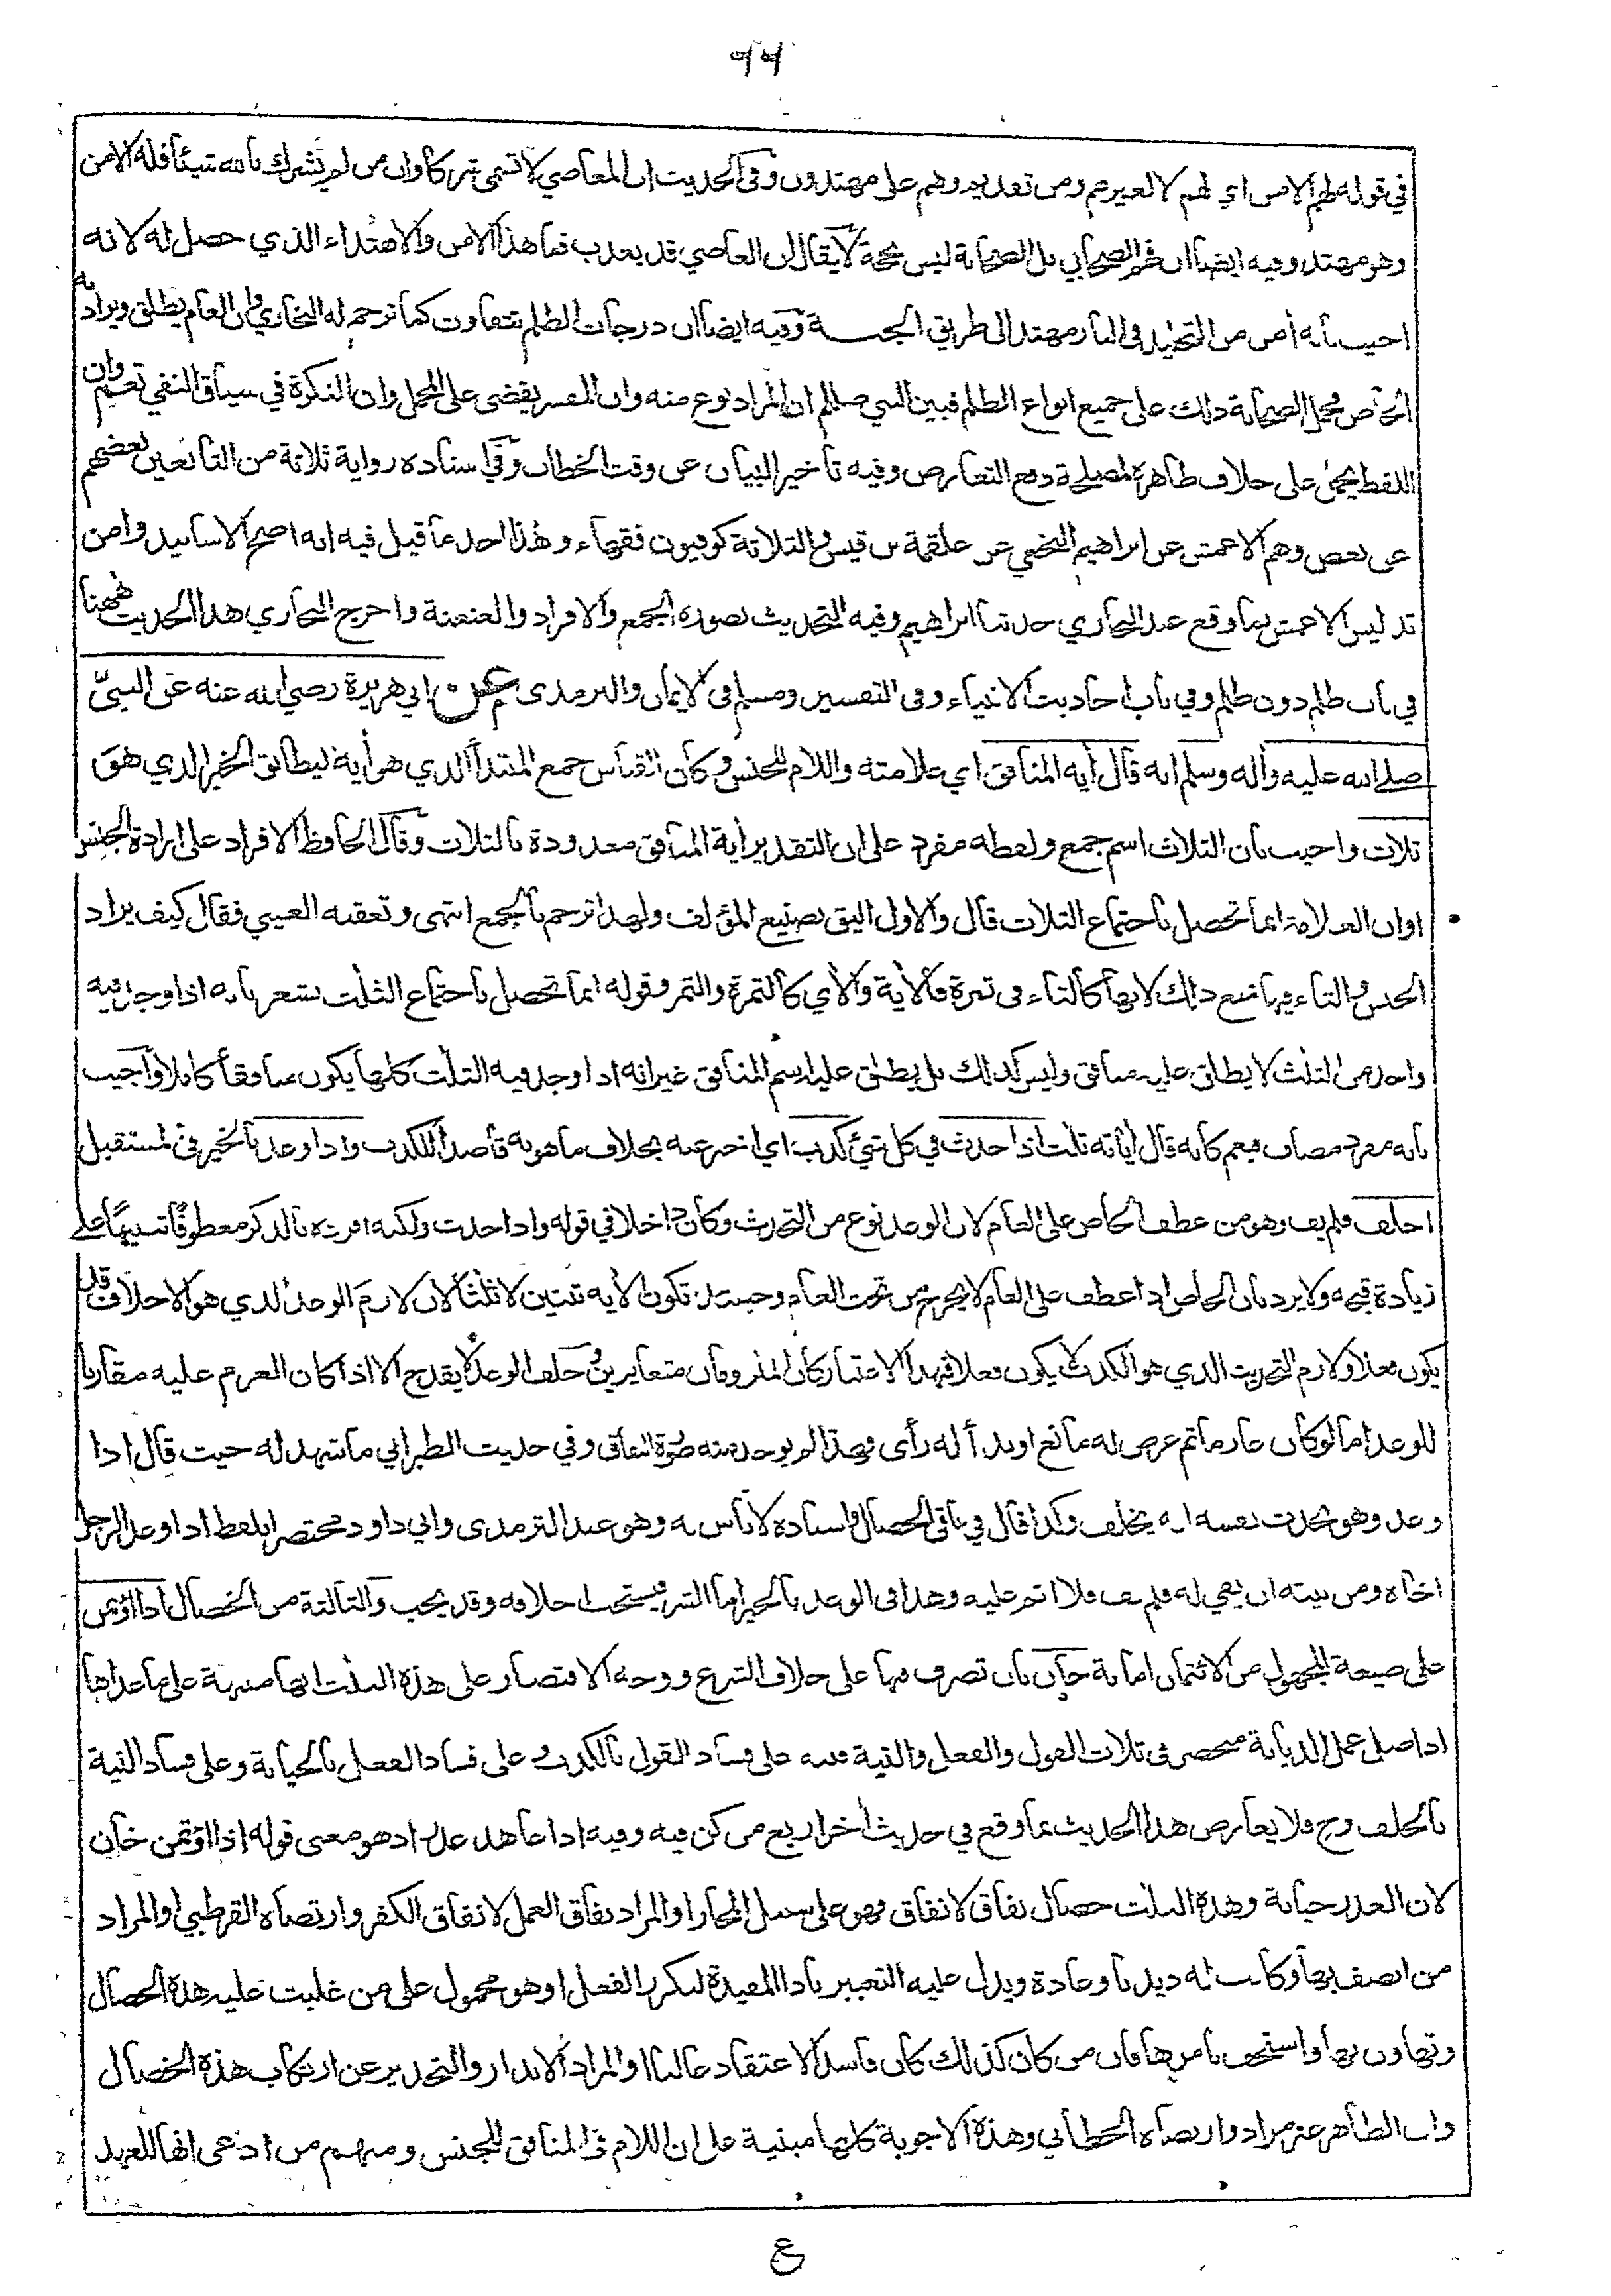 ٩٩
في قوله لهم الامن اي لهم لا لغيرهم ومن تقديم وهم على مهتدون وفى الحديث ان المعاصي لا تسمى شركا وان من لم يشرك بالله شيئا فله الامن
وهو مهتد وفيه ايضا ان فهم الصحابي بل الصحابة ليس بحجة لا يقال ان العاصي قد يعذب فما هذا الامن والاهتداء الذي حصل له لانه
اجيب بأنه أمن من التخليد فى النار مهتد الى طريق الجنة وفيه ايضا ان درجات الظلم تتفاوت كما ترجم له البخاري وان العام يطلق ويراد به
الخاص فحمل الصحابة ذلك على جميع انواع الظلم فبين النبي صللم ان المراد نوع منه وان المفسر يقضى على المجمل وان النكرة في سياق النفي تعم وان
اللفظ يحمل على خلاف ظاهره لمصلحة دفع التعارض وفيه تأخير البيان عن وقت الخطاب وفى اسناده رواية ثلاثة من التابعين بعضهم
عن بعض وهم الاعمش عن ابراهيم النخعي عن علقمة بن قيس والثلاثة كوفيون فقهاء وهذا احد ما قيل فيه انه اصح الاسانيد وامن
تدليس الاعمش بما وقع عند البخاري حدثنا ابراهيم وفيه التحديث بصورة الجمع والافراد والعنعنة واخرج البخاري هذا الحديث ههنا
في باب ظلم دون ظلم وفي باب احاديث الانبياء وفى التفسير ومسلم فى الايمان والترمذى عن ابي هريرة رضي الله عنه عن النبيّ
صلى الله عليه وأله وسلم انه قال أية المنافق اي علامته واللام للجنس وكان القياس جمع المبتدأ الذي هو أية ليطابق الخبر الذي هو
ثلاث واجيب بأن الثلاث اسم جمع ولفظه مفرد على ان التقدير أية المنافق معدودة بالثلاث وقال الحافظ الافراد على ارادة الجنس
او ان العلامة انما تحصل باجتماع الثلاث قال والاول اليق بصنيع المؤلف ولهذا ترجم بالجمع انتهى وتعقبه العيني فقال كيف يراد
الجنس والتاء فيها تمنع ذلك لانها كالتاء فى تمرة فالأية والأي كالتمرة والتمر وقوله انما تحصل باجتماع الثلث يشعر بانه اذا وجد فيه
واحد من الثلث لا يطلق عليه منافق وليس كذلك بل يطلق عليه اسم المنافق غير انه اذا وجد فيه الثلث كلها يكون منافقا كاملا واجيب
بأنه مفرد مضاف فيعم كأنه قال أياته ثلث اذا حدث في كل شيئ كذب اي اخبر عنه بخلاف ما هو به قاصدا للكذب واذا وعد بالخير فى المستقبل
اخلف فلم يف وهو من عطف الخاص على العام لان الوعد نوع من التحديث وكان داخلا في قوله واذا حدث ولكنه افرده بالذكر معطوفا تنبيها على
زيادة قبحه ولا يرد بأن الخاص اذا عطف على العام لا يخرج من تحت العام وحينئذ تكون الأية ثنتين لا ثلثا لأن لازم الوعد الذي هو الاخلاف قد
يكون فعلا ولازم التحديث الذي هو الكذب لا يكون فعلا فبهذا الاعتبار كان الملزومان متغايرين وخلف الوعد لا يقدح الا اذا كان العزم عليه مقارنا
للوعد اما لو كان عازما ثم عرض له مانع او بدأ له رأى فهذا لم يوجد منه صورة النفاق وفي حديث الطبراني ما يشهد له حيث قال اذا
وعد وهو يحدث نفسه انه يخلف وكذا قال في باقى الخصال واسناده لا بأس به وهو عند الترمذى وابي داود مختصرا بلفظ اذا وعد الرجل
اخاه ومن نيته ان يفي له فلم يف فلا اثم عليه وهذا فى الوعد بالخير اما الشر فيستحب اخلافه وقد يجب والثالثة من الخصال اذا اؤتمن
على صيغة المجهول من الائتمان امانة خان بان تصرف فيها على خلاف الشرع ووجه الاقتصار على هذه الثلث انها منبهة على ما عداها
اذ اصل عمل الديانة منحصر فى ثلاث القول والفعل والنية فنبه على فساد القول بالكذب وعلى فساد الفعل بالخيانة وعلى فساد النية
بالخلف وح فلا يعارض هذا الحديث بما وقع في حديث أخر اربع من كن فيه وفيه اذا عاهد غدر اذ هو معنى قوله اذا اؤتمن خان
لان الغدر خيانة وهذه الثلث خصال نفاق لا نفاق فهو على سبيل المجاز او المراد نفاق العمل لا نفاق الكفر وارتضاه القرطبي او المراد
من اتصف بها وكانت له ديدنا وعادة ويدل عليه التعبير باذا المفيدة لتكرر الفعل او هو محمول على من غلبت عليه هذه الخصال
وتهاون بها واستخف بامرها فان من كان كذلك كان فاسد الاعتقاد غالبا او المراد الانذار والتحذير عن ارتكاب هذه الخصال
وان الظاهر غير مراد وارتضاه الخطابي وهذه الاجوبة كلها مبنية على ان اللام فى المنافق للجنس ومنهم من ادعى انها للعهد
ع